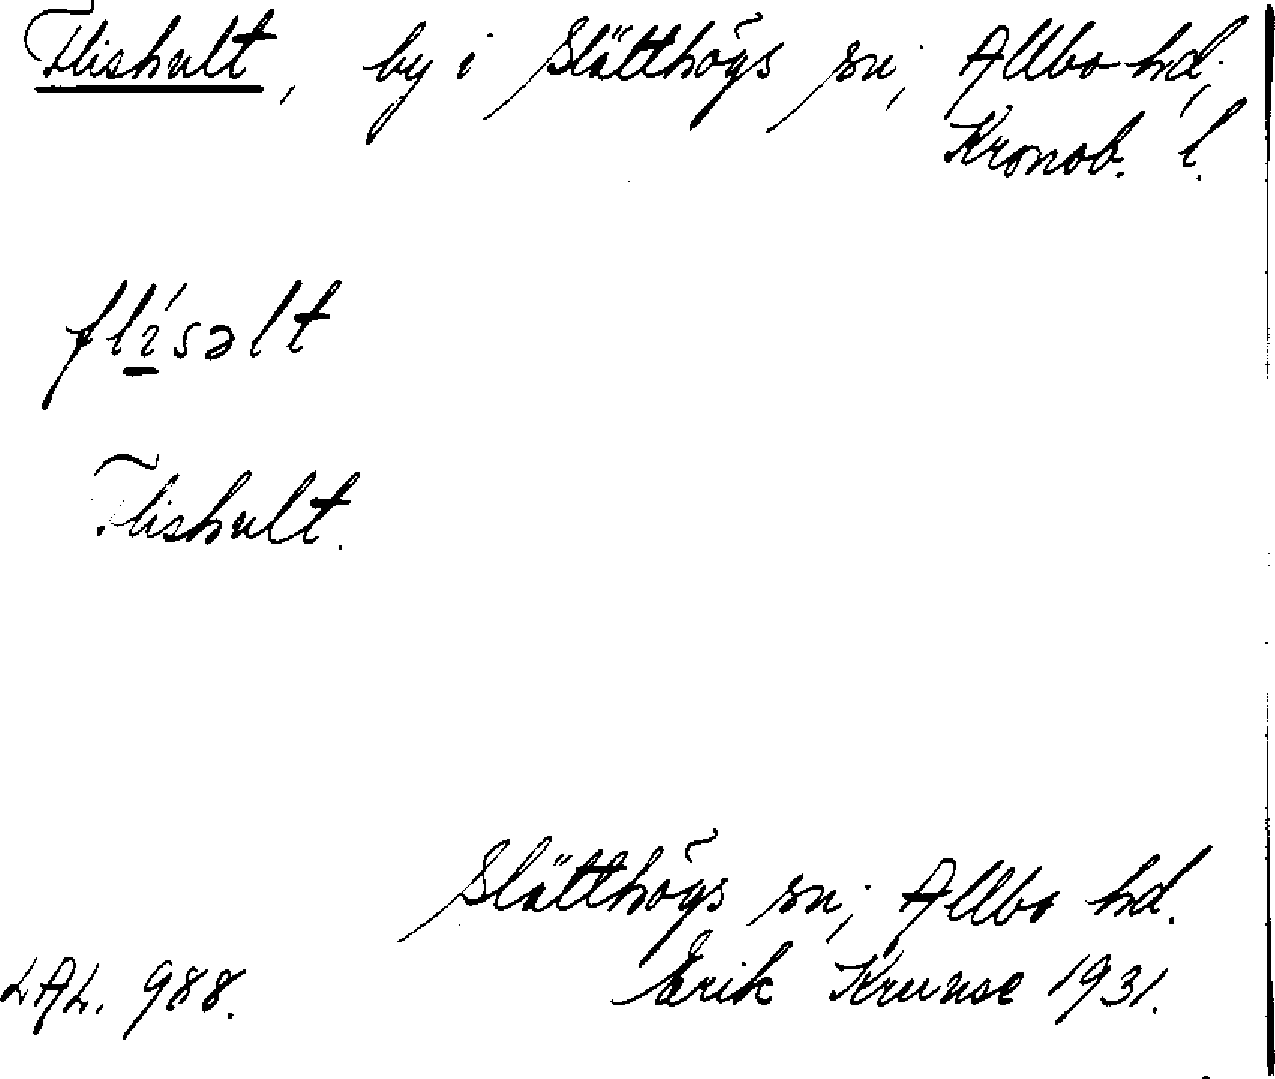 Flishult, by i Slätthögs sn, Allbo hd,
Kronob. l.
flı́səlt
Flishult.
Slätthögs sn, Allbo hd.
LAL. 988. Erik Krunse 1931.